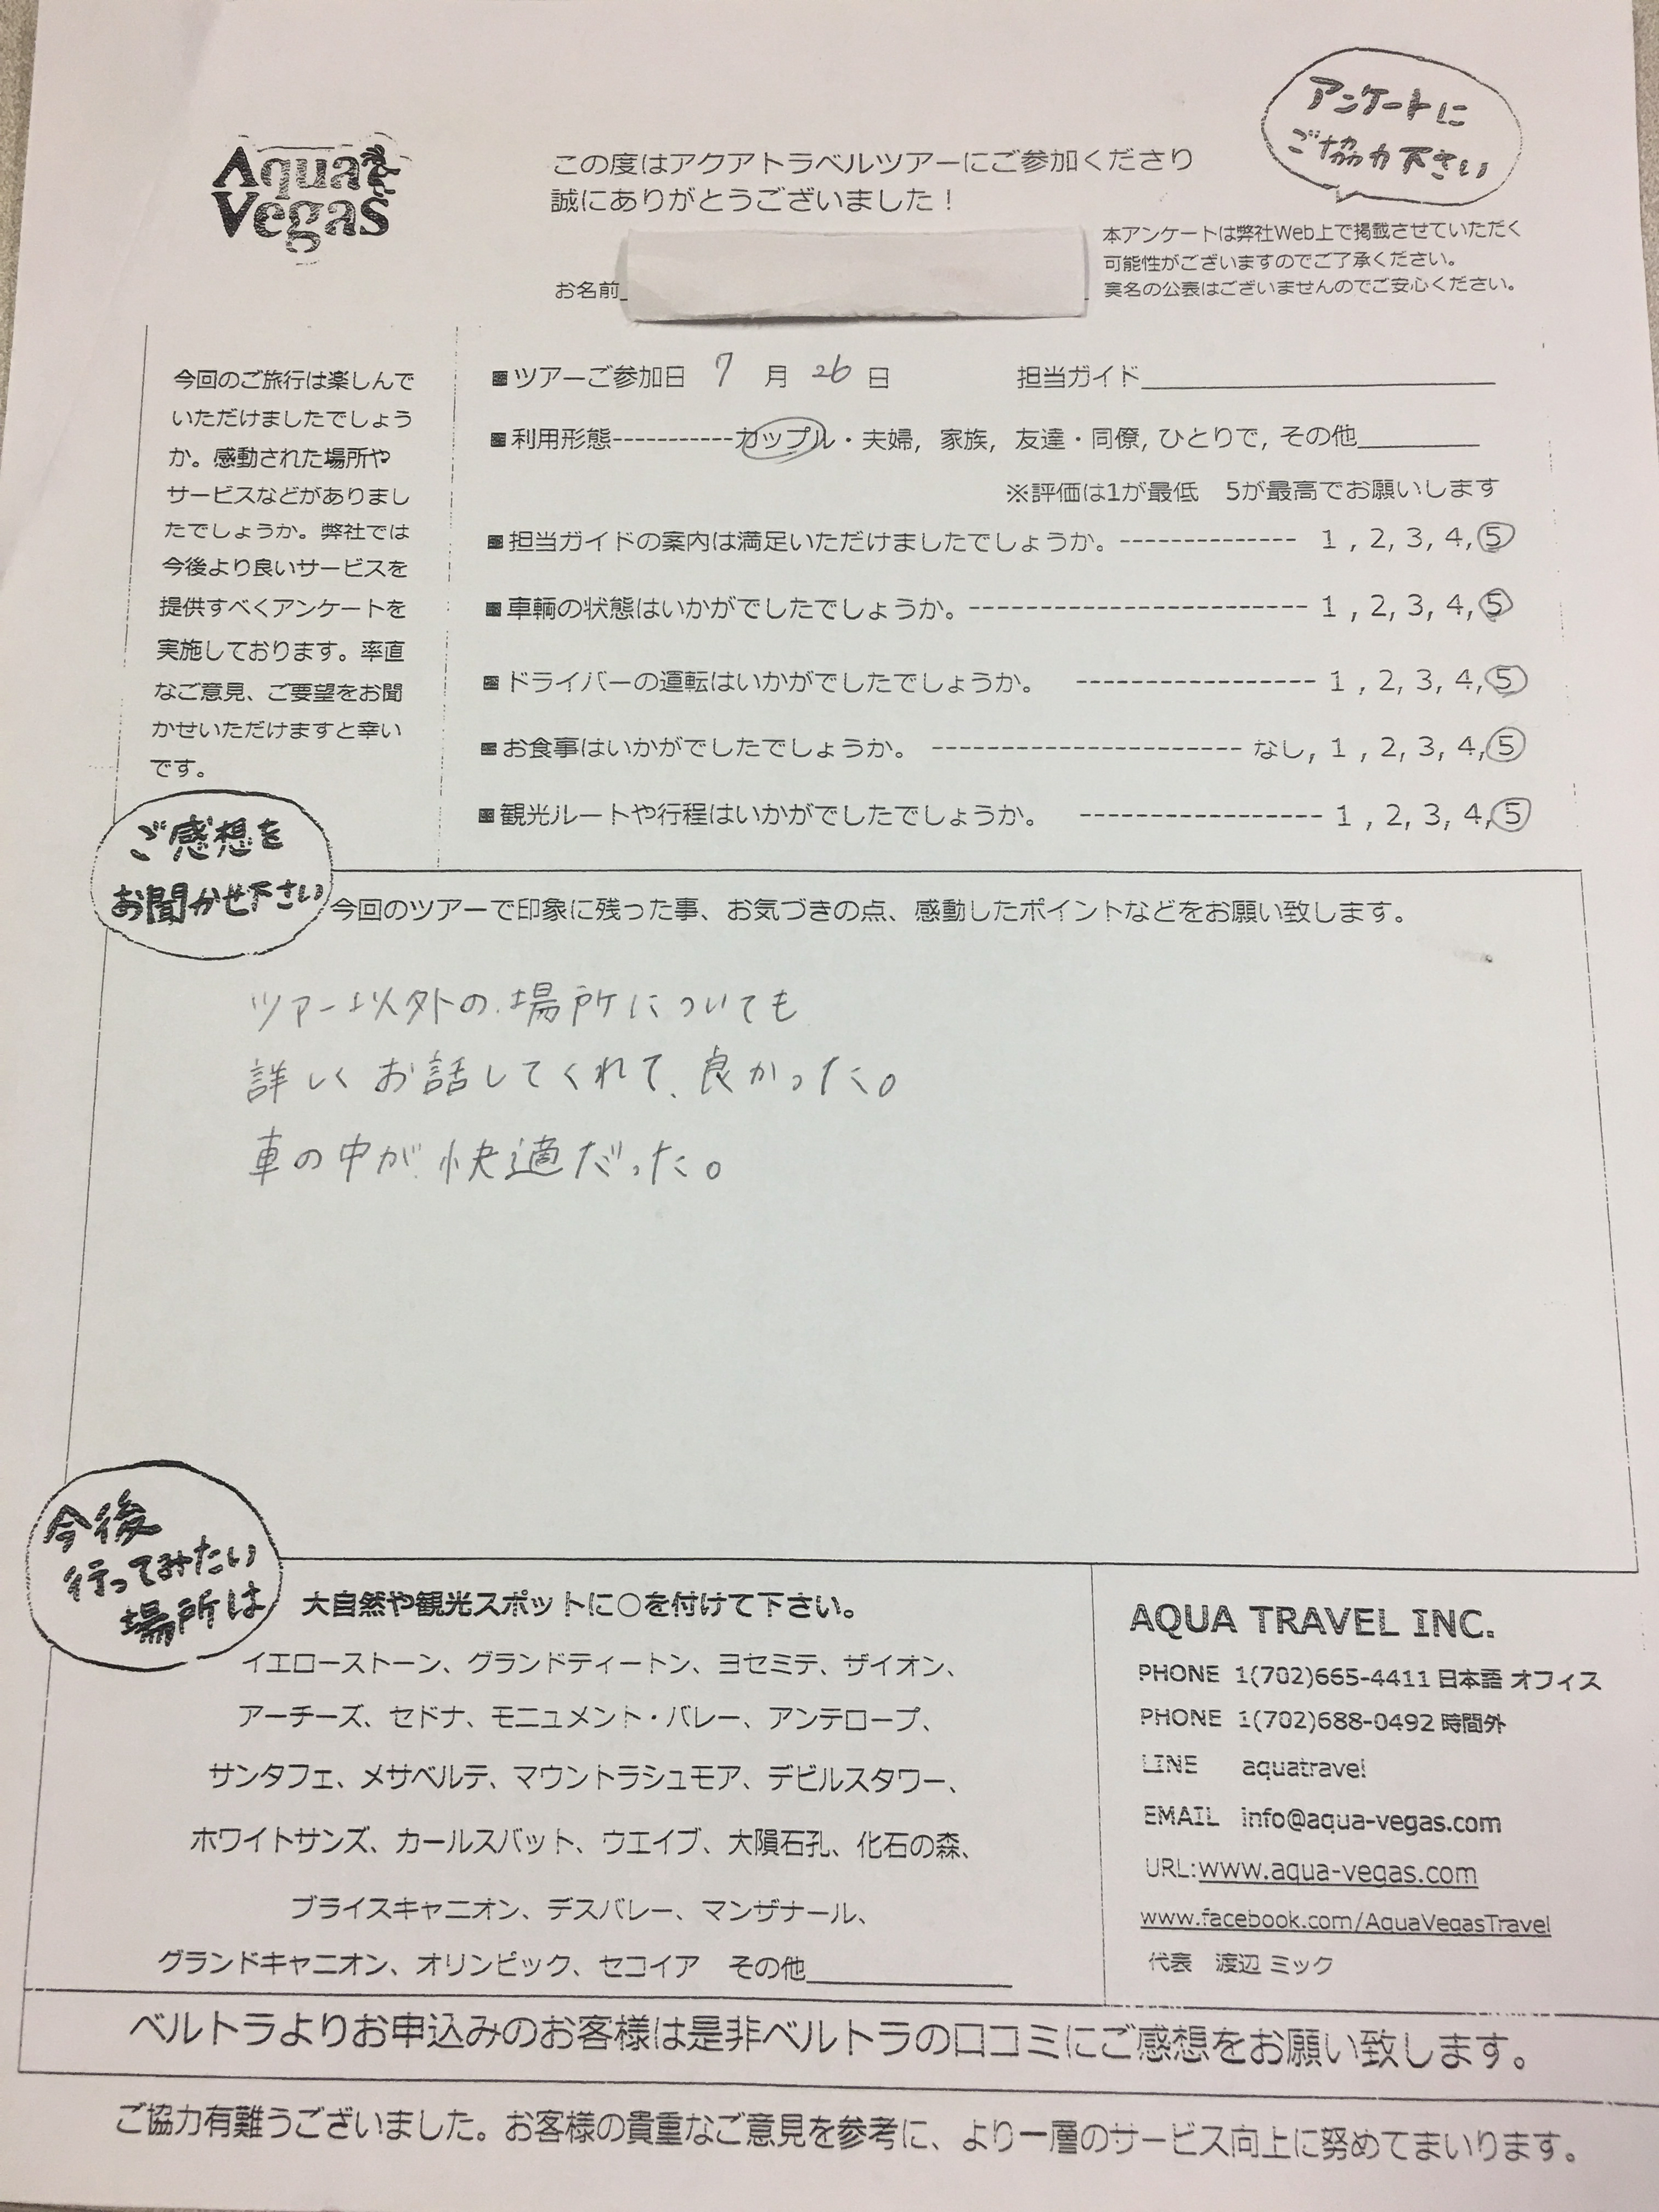 Aqua Vegas
アンケートに
ご協力下さい
この度はアクアトラベルツアーにご参加くださり
誠にありがとうございました！
本アンケートは弊社Web上で掲載させていただく
可能性がございますのでご了承ください。
実名の公表はございませんのでご安心ください。
お名前
今回のご旅行は楽しんで
いただけましたでしょう
か。感動された場所や
サービスなどがありまし
たでしょうか。弊社では
今後より良いサービスを
提供すべくアンケートを
実施しております。率直
なご意見、ご要望をお聞
かせいただけますと幸い
です。
■ツアーご参加日 7 月 26 日 担当ガイド
■利用形態-----------カップル・夫婦, 家族, 友達・同僚, ひとりで, その他
※評価は1が最低 5が最高でお願いします
■担当ガイドの案内は満足いただけましたでしょうか。-------------- 1 , 2, 3, 4, 5
■車輌の状態はいかがでしたでしょうか。--------------------------- 1 , 2, 3, 4, 5
■ドライバーの運転はいかがでしたでしょうか。 ------------------- 1 , 2, 3, 4, 5
■お食事はいかがでしたでしょうか。 ------------------------- なし, 1 , 2, 3, 4, 5
■観光ルートや行程はいかがでしたでしょうか。 -------------------- 1 , 2, 3, 4, 5
ご感想を
お聞かせ下さい
今回のツアーで印象に残った事、お気づきの点、感動したポイントなどをお願い致します。
ツアー以外の場所についても
詳しくお話してくれて、良かった。
車の中が快適だった。
今後
行ってみたい
場所は
大自然や観光スポットに○を付けて下さい。
イエローストーン、グランドティートン、ヨセミテ、ザイオン、
アーチーズ、セドナ、モニュメント・バレー、アンテロープ、
サンタフェ、メサベルテ、マウントラシュモア、デビルスタワー、
ホワイトサンズ、カールスバット、ウエイブ、大隕石孔、化石の森、
ブライスキャニオン、デスバレー、マンザナール、
グランドキャニオン、オリンピック、セコイア その他
AQUA TRAVEL INC.
PHONE 1(702)665-4411 日本語 オフィス
PHONE 1(702)688-0492 時間外
LINE aquatravel
EMAIL info@aqua-vegas.com
URL:www.aqua-vegas.com
www.facebook.com/AquaVegasTravel
代表 渡辺 ミック
ベルトラよりお申込みのお客様は是非ベルトラの口コミにご感想をお願い致します。
ご協力有難うございました。お客様の貴重なご意見を参考に、より一層のサービス向上に努めてまいります。